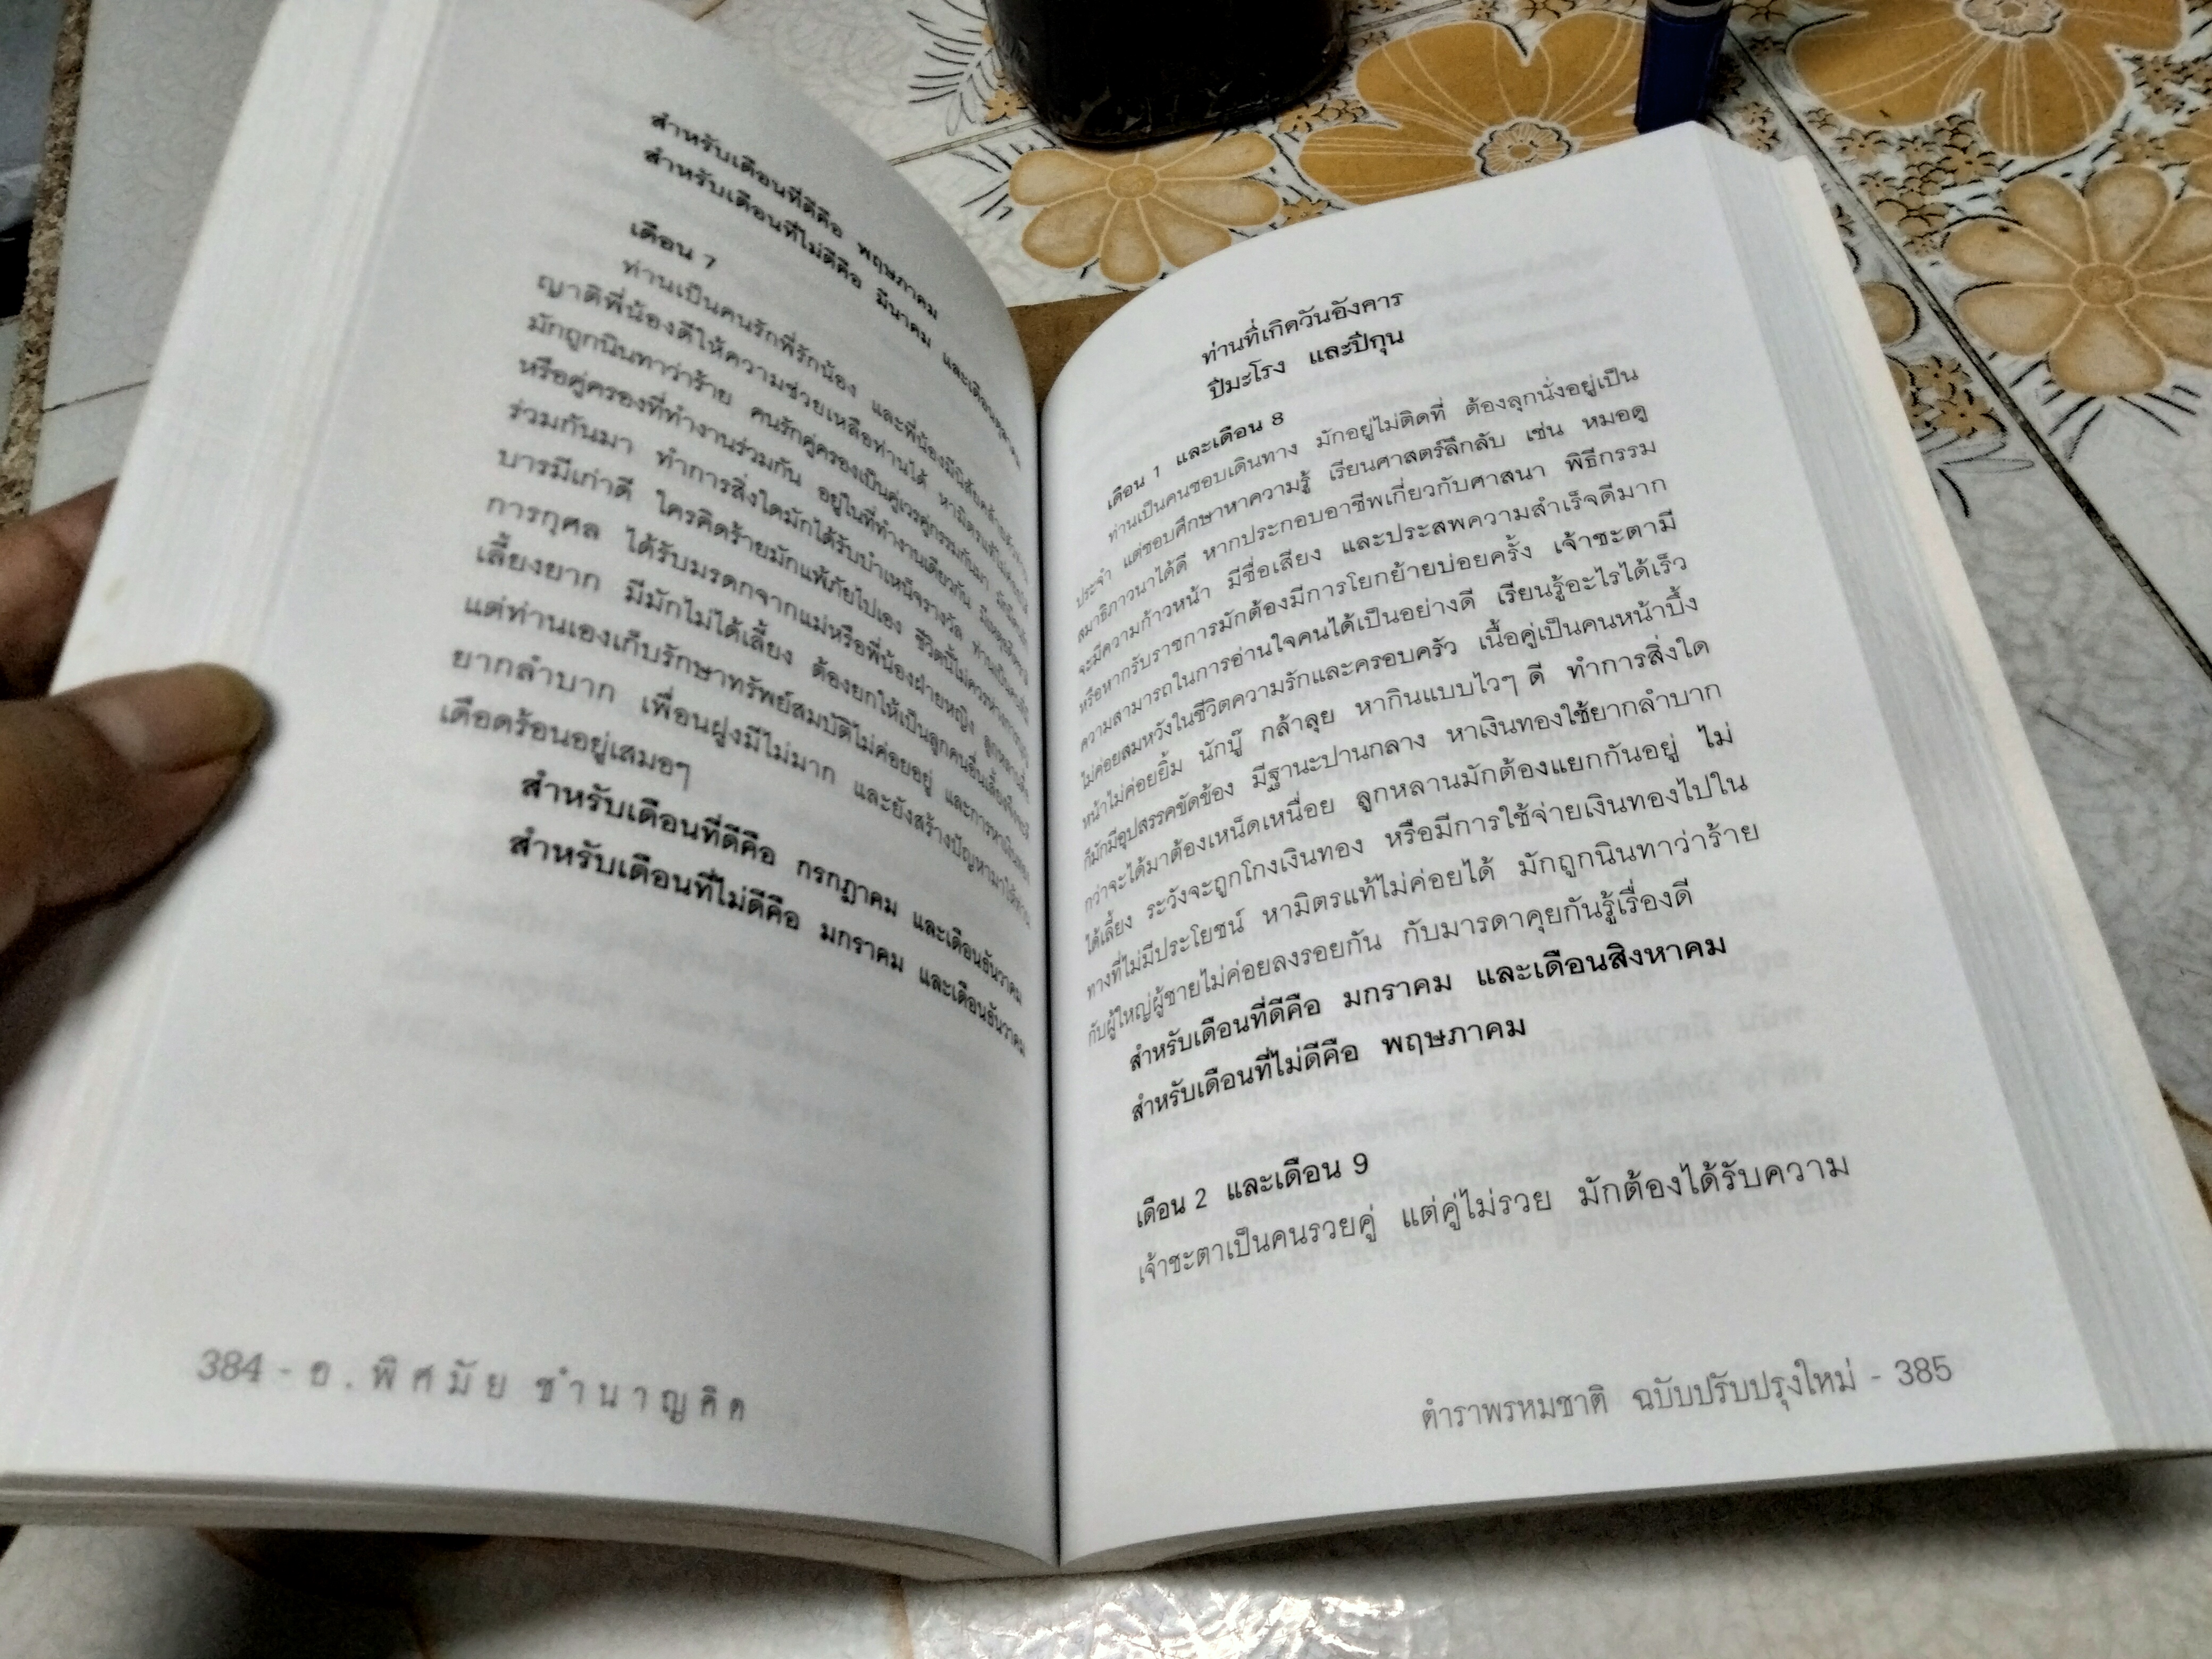 สำหรับเดือนที่ดีคือ พฤษภาคม และเดือนตุลาคม
สำหรับเดือนที่ไม่ดีคือ มีนาคม
เดือน 7
ท่านเป็นคนรักพี่รักน้อง และพี่น้องมีนิสัยคล้าย
ญาติพี่น้องดีให้ความช่วยเหลือท่านได้ หามิตรแท้ไม่ค่อยได้
มักถูกนินทาว่าร้าย คนรักคู่ครองเป็นคู่เวรคู่กรรมกันมา
หรือคู่ครองที่ทำงานร่วมกัน อยู่ในที่ทำงานเดียวกัน
ร่วมกันมา ทำการสิ่งใดมักได้รับบำเหน็จรางวัล ท่านเป็นคนมี
บารมีเก่าดี ใครคิดร้ายมักแพ้ภัยไปเอง ชีวิตนี้ไม่ควรห่างการบุญ
การกุศล ได้รับมรดกจากแม่หรือพี่น้องฝ่ายหญิง ลูกหลาน
เลี้ยงยาก มีมักไม่ได้เลี้ยง ต้องยกให้เป็นลูกคนอื่นเลี้ยง
แต่ท่านเองเก็บรักษาทรัพย์สมบัติไม่ค่อยอยู่ และการหาเงินทอง
ยากลำบาก เพื่อนฝูงมีไม่มาก และยังสร้างปัญหามาให้ท่าน
เดือดร้อนอยู่เสมอๆ
สำหรับเดือนที่ดีคือ กรกฎาคม และเดือนธันวาคม
สำหรับเดือนที่ไม่ดีคือ มกราคม และเดือนธันวาคม
384 - อ.พิศมัย ชำนาญคิด
ท่านที่เกิดวันอังคาร
ปีมะโรง และปีกุน
เดือน 1 และเดือน 8
ท่านเป็นคนชอบเดินทาง มักอยู่ไม่ติดที่ ต้องลุกนั่งอยู่เป็น
ประจำ แต่ชอบศึกษาหาความรู้ เรียนศาสตร์ลึกลับ เช่น หมอดู
สมาธิภาวนาได้ดี หากประกอบอาชีพเกี่ยวกับศาสนา พิธีกรรม
จะมีความก้าวหน้า มีชื่อเสียง และประสพความสำเร็จดีมาก
หรือหากรับราชการมักต้องมีการโยกย้ายบ่อยครั้ง เจ้าชะตามี
ความสามารถในการอ่านใจคนได้เป็นอย่างดี เรียนรู้อะไรได้เร็ว
ไม่ค่อยสมหวังในชีวิตความรักและครอบครัว เนื้อคู่เป็นคนหน้าบึ้ง
หน้าไม่ค่อยยิ้ม นักบู๊ กล้าลุย หากินแบบไวๆ ดี ทำการสิ่งใด
ก็มักมีอุปสรรคขัดข้อง มีฐานะปานกลาง หาเงินทองใช้ยากลำบาก
กว่าจะได้มาต้องเหน็ดเหนื่อย ลูกหลานมักต้องแยกกันอยู่ ไม่
ได้เลี้ยง ระวังจะถูกโกงเงินทอง หรือมีการใช้จ่ายเงินทองไปใน
ทางที่ไม่มีประโยชน์ หามิตรแท้ไม่ค่อยได้ มักถูกนินทาว่าร้าย
กับผู้ใหญ่ผู้ชายไม่ค่อยลงรอยกัน กับมารดาคุยกันรู้เรื่องดี
สำหรับเดือนที่ดีคือ มกราคม และเดือนสิงหาคม
สำหรับเดือนที่ไม่ดีคือ พฤษภาคม
เดือน 2 และเดือน 9
เจ้าชะตาเป็นคนรวยคู่ แต่คู่ไม่รวย มักต้องได้รับความ
ตำราพรหมชาติ ฉบับปรับปรุงใหม่ - 385